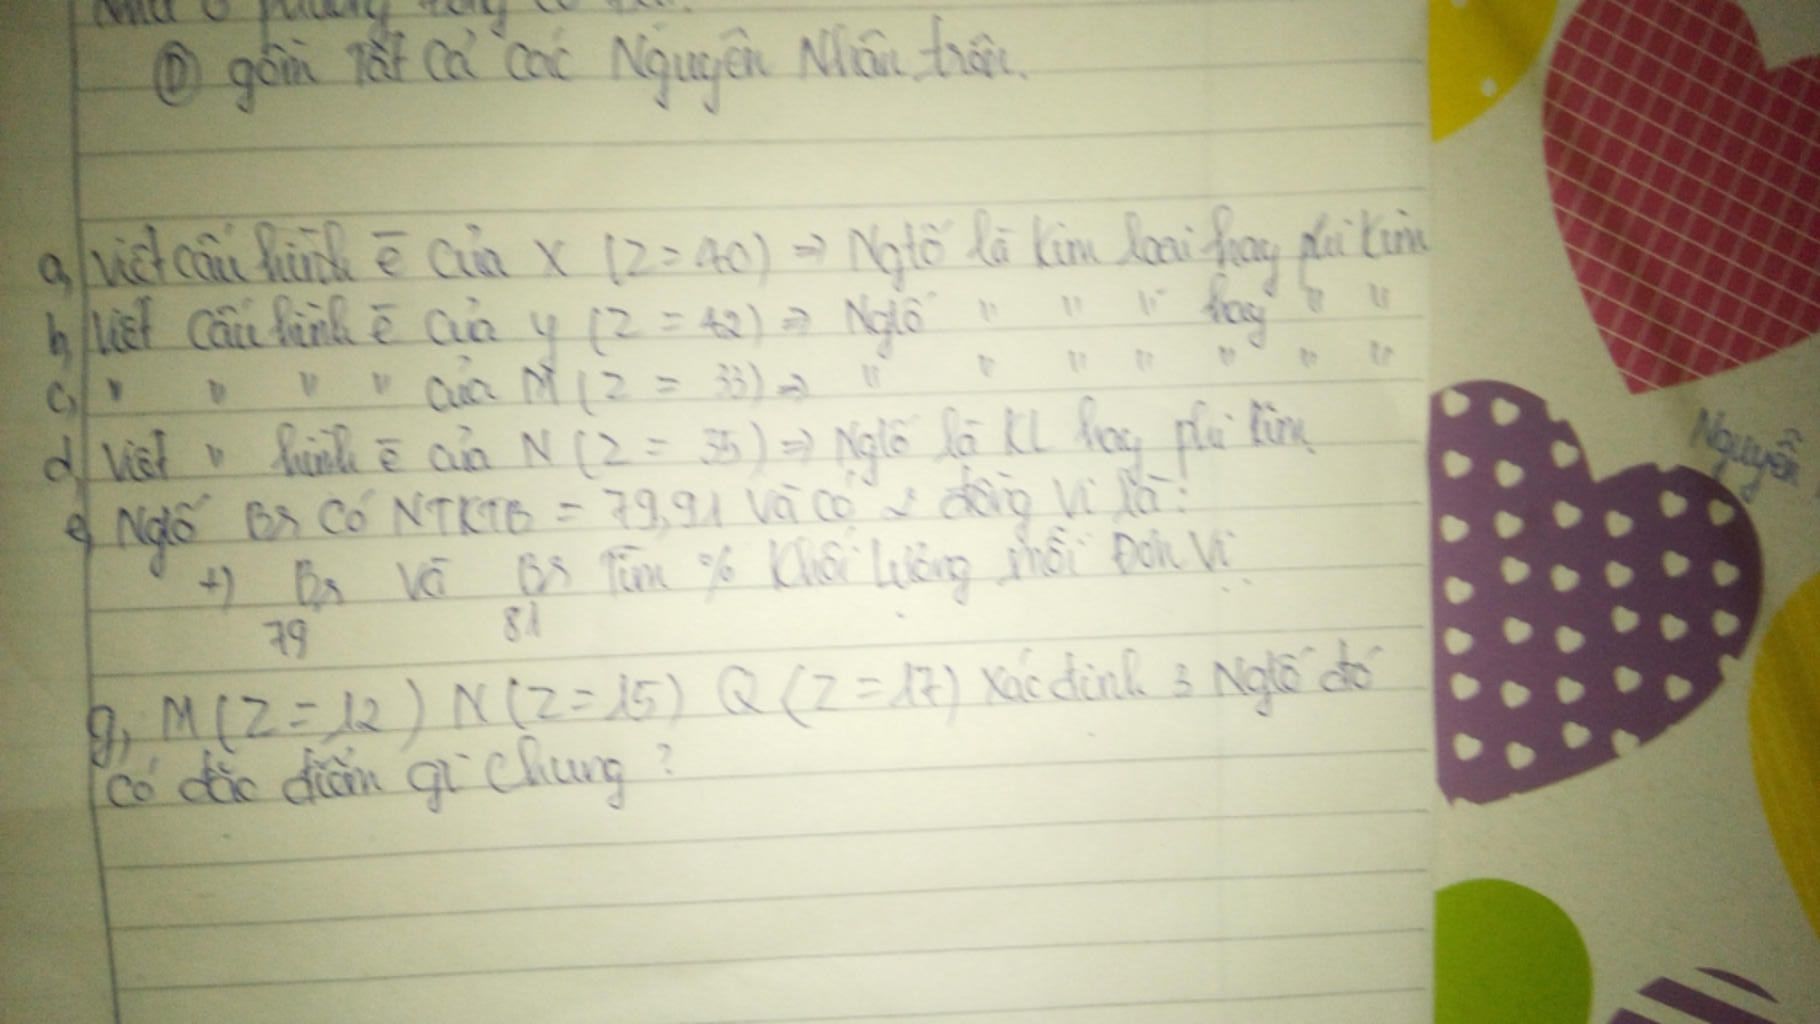 D gồm tất cả các Nguyên Nhân trên.
a, Viết cấu hình ē của X (Z = 40) => Ngtố là kim loại hay phi kim
b, Viết cấu hình ē của y (Z = 42) => Ngtố " " " hay " "
c, " " " " của M (Z = 33) => " " " " " " "
d, Viết " hình ē của N (Z = 35) => Ngtố là KL hay phi kim
e, Ngtố Br Có NTKTB = 79,91 Và có 2 đồng vị là:
+) Br Và Br Tìm % Khối lượng mỗi Đơn Vị
79 81
g, M (Z = 12) N (Z = 15) Q (Z = 17) Xác định 3 Ngtố đó
có đặc điểm gì chung ?
Nguyễn